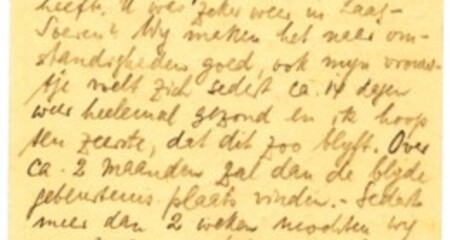 heeft. U was zeker weer in Laag-
Soeren? Wij maken het naar om-
standigheden goed, ook mijn vrouw-
tje voelt zich sedert ca. 14 dagen
weer heelemaal gezond en ik hoop
ten zeerste, dat dit zoo blijft. Over
ca. 2 maanden zal dan de blijde
gebeurtenis plaats vinden. - Sedert
meer dan 2 weken mochten wij